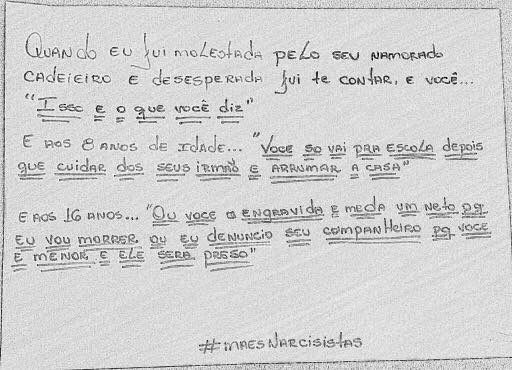 QUANDO EU fui MOLESTADA PELO SEU NAMORADO
CADEIEIRO E DESESPERADA fui te CONTAR, E VOCÊ...
"Isso e o que você diz"
E AOS 8 ANOS DE IDADE... "Voce so vai pra escola depois
que cuidar dos seus irmão e ARRUMAR A CASA"
E AOS 16 ANOS... "Ou voce engravida e meda um neto pq
eu vou morrer ou eu denuncio seu companheiro pq voce
E menor e ele sera preso"
#MAESNARCISISTAS